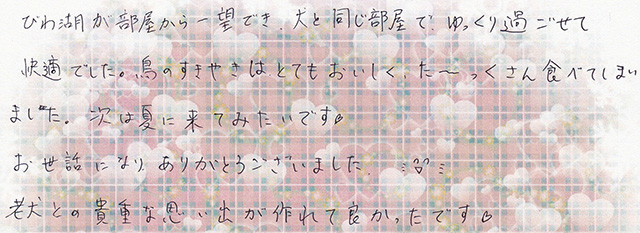 びわ湖が部屋から一望でき、犬と同じ部屋で、ゆっくり過ごせて
快適でした。鳥のすきやきはとてもおいしく、た〜っくさん食べてしまい
ました。次は夏に来てみたいです♪
お世話になり、ありがとうございました。
老犬との貴重な思い出が作れて良かったです♪